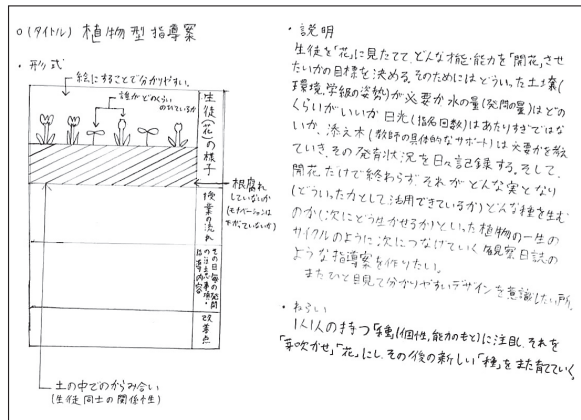 ○(タイトル) 植物型指導案
・形式
絵にすることで分かりやすい。
誰がどのくらい
のびているか
生徒(花)の様子
根腐れ
していないか
(モチベーションは
下がっていないか)
授業の流れ
その日毎の発問
の注意事項・
指導内容
改善点
土の中でのからみ合い
(生徒同士の関係性)
・説明
生徒を「花」に見たてて、どんな才能・能力を「開花」させ
たいかの目標を決める。そのためにはどういった土壌(
環境、学級の姿勢)が必要か水の量(発問の量)はどの
くらいがいいか日光(指名回数)はあたりすぎではな
いか、添え木(教師の具体的なサポート)は必要かを考え
ていき、その発育状況を日々記録する。そして、
開花だけで終わらず、それがどんな実となり
(どういった力として活用できているか)どんな種を生む
のか(次にどう生かせるか)といった植物の一生の
サイクルのように次につなげていく観察日誌の
ような指導案を作りたい。
またひと目見て分かりやすいデザインを意識したい所。
・ねらい
1人1人の持つ「種」(個性、能力のもと)に注目し、それを
「芽吹かせ」「花」にし、その後の新しい「種」をまた育てていく